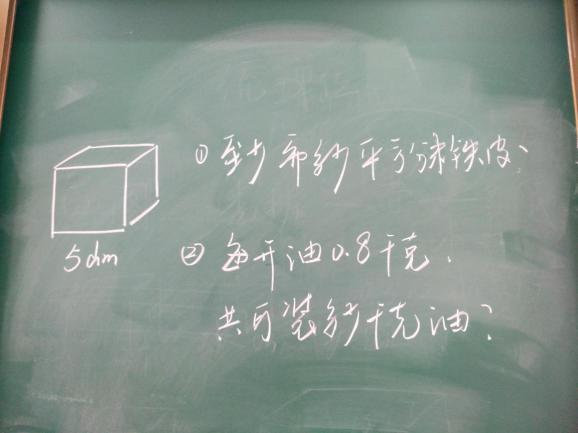 ① 至少需多少平方分米铁皮?
5dm
② 每升油0.8千克,
共可装多少千克油?